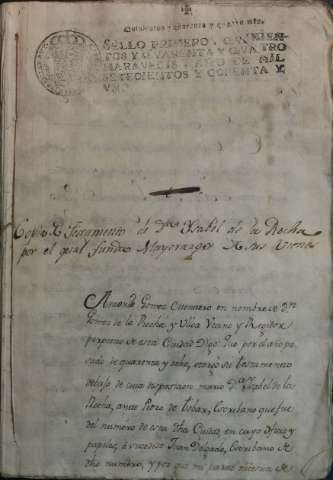 Quinientos y quarenta y quatro mrs.
SELLO PRIMERO, QVINIEN-
TOS Y QVARENTA Y QVATRO
MARAVEDIS, AÑO DE MIL
SETECIENTOS Y OCHENTA Y
VNO
Copia de Testamento de Dª Ysabel de la Rocha
por el qual fundo Mayorazgo de sus Vienes
Antonio Gomez Guerrero en nombre de Dn
Gomez de la Rocha y Ulloa Vecino y Rexidor
perpetuo de esta Ciudad Digo: Que por el año pa-
sado de quarenta y ocho, otorgó su testamento
debajo de cuia disposicion murio Dª Ysabel de la
Rocha, ante Pedro de Tobar, Escribano que fue
del numero de esta dha Ciudad, en cuyo oficio y
papeles, á sucedido Juan Delgado, Escribano de
dho numero, y por que mi parte necesita de